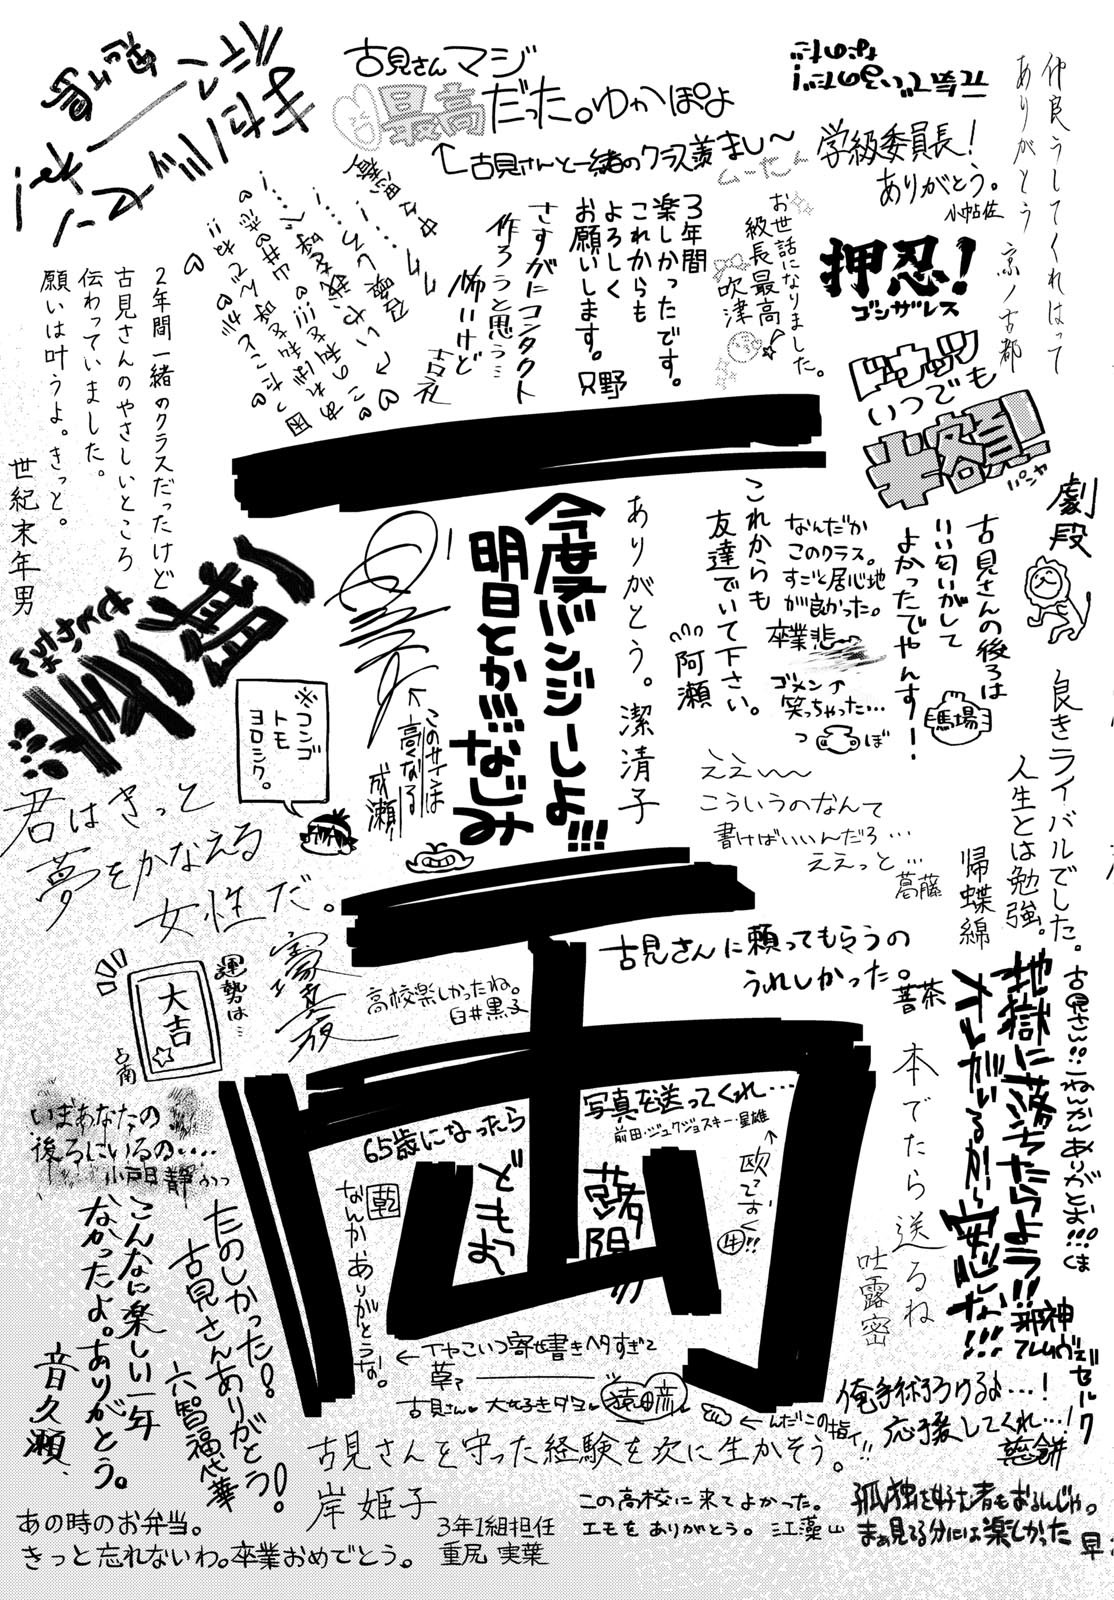 古見さんマジ
最高だった。ゆかぽよ
古見さんと一緒のクラス羨まし〜
学級委員長!
ありがとう。
小帖佐
仲良うしてくれはって
ありがとう
京ノ古都
押忍!
ゴンザレス
お世話になりました。
級長最高
吹津
3年間
楽しかったです。
これからも
よろしく
お願いします。只野
さすがにコンタクト
作ろうと思う…
怖いけど
古礼
2年間一緒のクラスだったけど
古見さんのやさしいところ
伝わっていました。
願いは叶うよ。きっと。
世紀末年男
ドーナッツ
いつでも
半額!!
劇段
古見さんの後ろは
いい匂いがして
よかったでやんすー!
馬場
なんだか
このクラス。
すごと居心地
が良かった。
卒業悲
ゴメン
笑っちゃった…
これからも
友達でいて下さい。
阿瀬
ありがとう。潔清子
今度バンジーしよ!!!
明日とか!!!なじみ
このサインは
高くなる
成瀬
※コンゴ
トモ
ヨロシク。
一期一会
君はきっと
夢をかなえる
女性だ。
運勢は…
大吉
占南
ええ〜
こういうのなんて
書けばいいんだろ…
ええっと…
葛藤
良きライバルでした。
人生とは勉強。
帰蝶綿
古見さんに頼ってもらうの
うれしかった。
高校楽しかったね。
白井黒子
古見さん!!一ねんかんありがとお!!!くま
地獄に落ちたらよラ!!
オレがいるから安心しな!!!
本でたら送るね
吐露密
いまあなたの
後ろにいるの・・・・
小戸日静
65歳になったら
ども。
写真を送ってくれ…
前田・ジュクジョスキー・星雄
乾
なんか、ありがとうな。
たのしかった!
古見さんありがとう!
六智福代華
こんなに楽しい一年
なかったよ。ありがとう。
音久瀬、
イヤこいつ寄せ書きヘタすぎて
草
古見さん大好きダヨ
猿田彦
んだこの指ィ!!
俺手術うけるよ…!
応援してくれ…!
古見さんを守った経験を次に生かそう。
岸姫子
あの時のお弁当。
きっと忘れないわ。卒業おめでとう。
3年1組担任
重尻 実葉
この高校に来てよかった。
エモをありがとう。江藻山
孤独を好む者もおるんじゃ。
まぁ見てる分には楽しかった